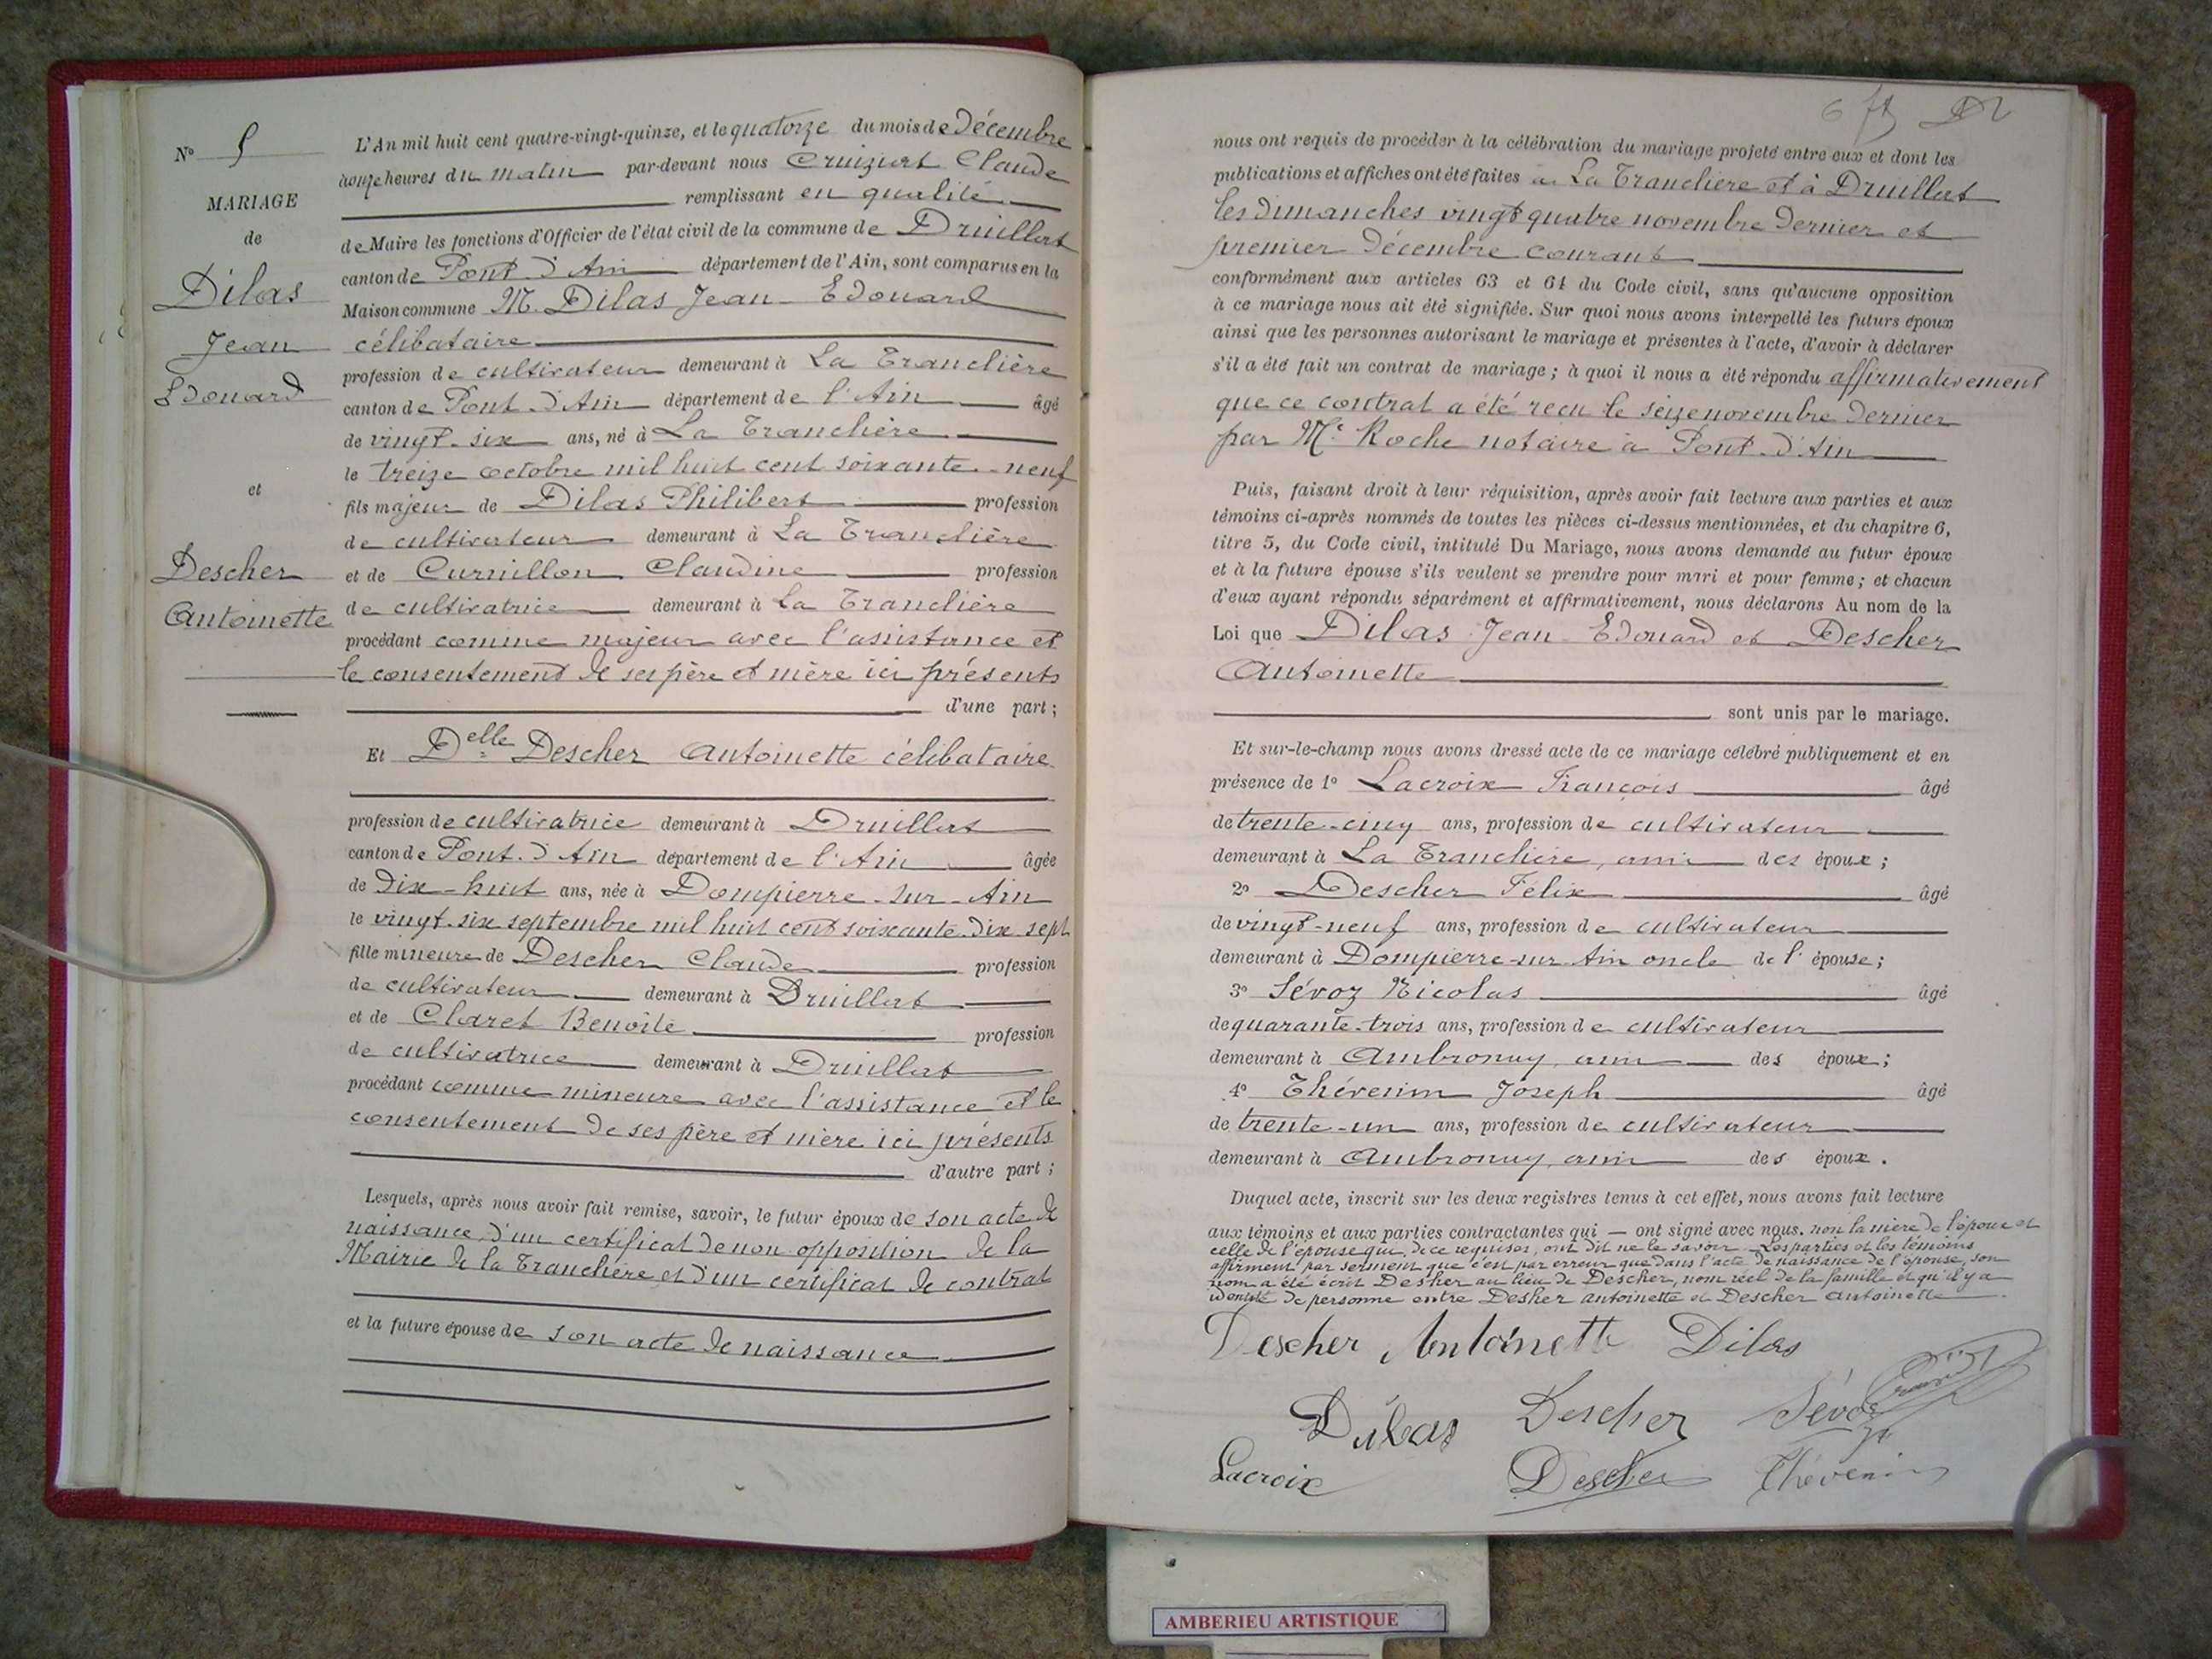 N° 5
MARIAGE
de
Dilas
Jean
Edouard
et
Descher
Antoinette
L'An mil huit cent quatre-vingt-quinze, et le quatorze du mois de Décembre
à onze heures du matin par-devant nous Cruiziat Claude
remplissant en qualité
de Maire les fonctions d'Officier de l'état civil de la commune de Druillat
canton de Pont d'Ain département de l'Ain, sont comparus en la
Maison commune M. Dilas Jean-Edouard
célibataire
profession de cultivateur demeurant à La Tranclière
canton de Pont d'Ain département de l'Ain âgé
de vingt-six ans, né à La Tranclière
le treize octobre mil huit cent soixante-neuf
fils majeur de Dilas Philibert profession
de cultivateur demeurant à La Tranclière
et de Curnillon Claudine profession
de cultivatrice demeurant à La Tranclière
procédant comme majeur avec l'assistance et
le consentement de ses père et mère ici présents
d'une part ;
Et Delle Descher Antoinette célibataire
profession de cultivatrice demeurant à Druillat
canton de Pont-d'Ain département de l'Ain âgée
de dix-huit ans, née à Dompierre-sur-Ain
le vingt-six septembre mil huit cent soixante-dix-sept
fille mineure de Descher Claude profession
de cultivateur demeurant à Druillat
et de Claret Benoîte profession
de cultivatrice demeurant à Druillat
procédant comme mineure avec l'assistance et le
consentement de ses père et mère ici présents
d'autre part ;
Lesquels, après nous avoir fait remise, savoir, le futur époux de son acte de
naissance, d'un certificat de non opposition de la
Mairie de la Tranclière et d'un certificat de contrat
et la future épouse de son acte de naissance
nous ont requis de procéder à la célébration du mariage projeté entre eux et dont les
publications et affiches ont été faites à La Tranclière et à Druillat
les dimanches vingt quatre novembre dernier et
premier décembre courant
conformément aux articles 63 et 64 du Code civil, sans qu'aucune opposition
à ce mariage nous ait été signifiée. Sur quoi nous avons interpellé les futurs époux
ainsi que les personnes autorisant le mariage et présentes à l'acte, d'avoir à déclarer
s'il a été fait un contrat de mariage ; à quoi il nous a été répondu affirmativement
que ce contrat a été reçu le seize novembre dernier
par Me Roche notaire à Pont-d'Ain
Puis, faisant droit à leur réquisition, après avoir fait lecture aux parties et aux
témoins ci-après nommés de toutes les pièces ci-dessus mentionnées, et du chapitre 6,
titre 5, du Code civil, intitulé Du Mariage, nous avons demandé au futur époux
et à la future épouse s'ils veulent se prendre pour mari et pour femme ; et chacun
d'eux ayant répondu séparément et affirmativement, nous déclarons Au nom de la
Loi que Dilas Jean-Edouard et Descher
Antoinette
sont unis par le mariage.
Et sur-le-champ nous avons dressé acte de ce mariage célébré publiquement et en
présence de 1° Lacroix François âgé
de trente-cinq ans, profession de cultivateur
demeurant à La Tranclière, ami des époux ;
2° Descher Félix âgé
de vingt-neuf ans, profession de cultivateur
demeurant à Dompierre-sur-Ain oncle de l'épouse ;
3° Sévoz Nicolas âgé
de quarante-trois ans, profession de cultivateur
demeurant à Ambronay, ami des époux ;
4° Thévenin Joseph âgé
de trente-un ans, profession de cultivateur
demeurant à Ambronay, ami des époux.
Duquel acte, inscrit sur les deux registres tenus à cet effet, nous avons fait lecture
aux témoins et aux parties contractantes qui — ont signé avec nous. non la mère de l'époux et
celle de l'épouse qui, de ce requises, ont dit ne le savoir. Les parties et les témoins
affirment par serment que c'est par erreur que dans l'acte de naissance de l'épouse, son
nom a été écrit Desher au lieu de Descher, nom réel de la famille et qu'il y a
identité de personne entre Desher Antoinette et Descher Antoinette
Descher Antoinette Dilas
Dilas Descher Sévoz
Lacroix Descher Thévenin
AMBERIEU ARTISTIQUE